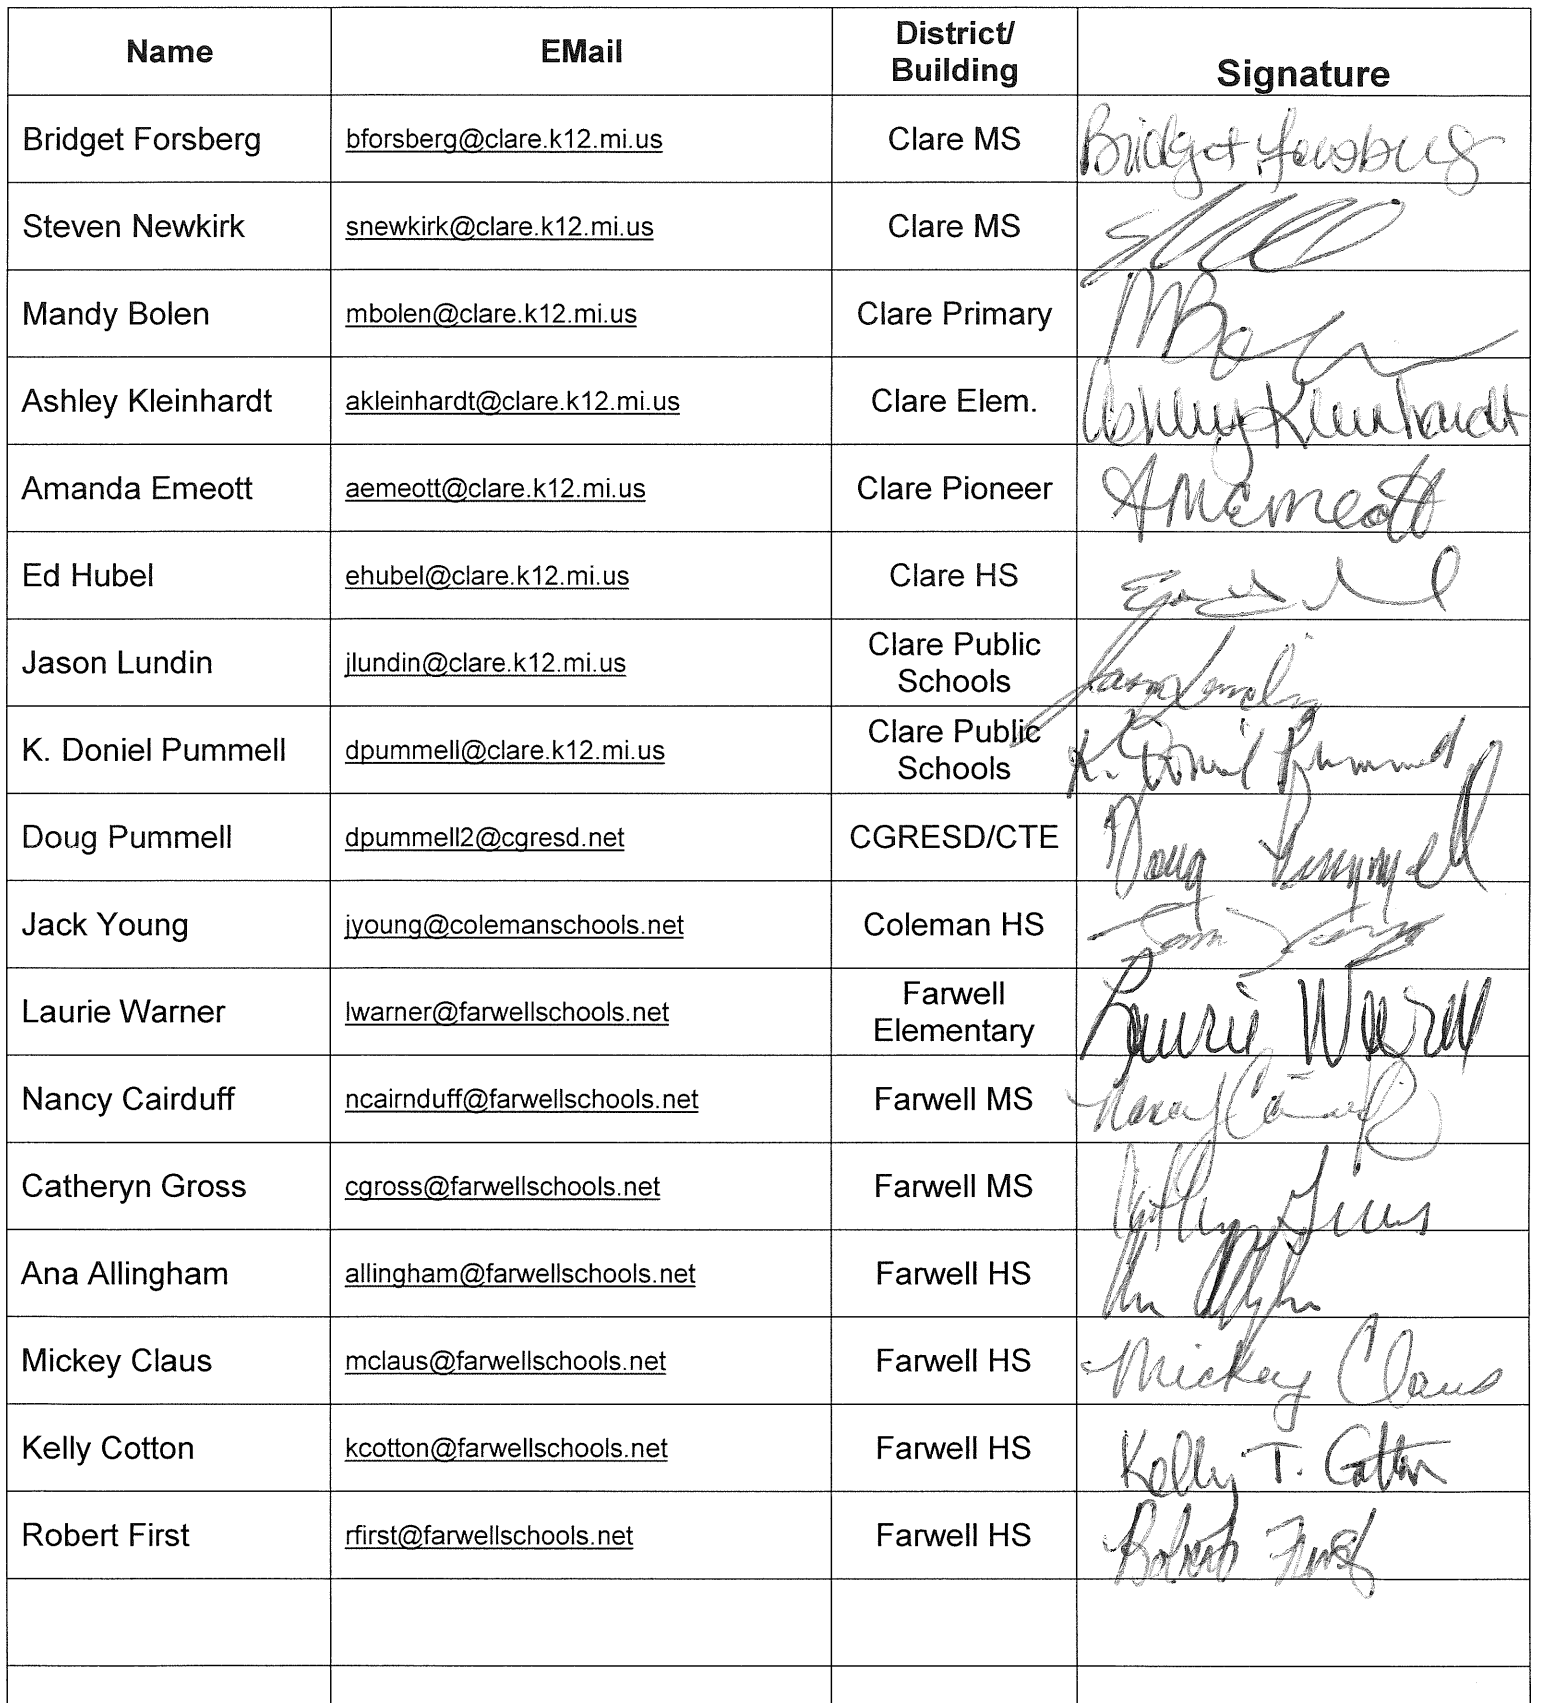 Name EMail District/ Building Signature
Bridget Forsberg bforsberg@clare.k12.mi.us Clare MS Bridget Forsberg
Steven Newkirk snewkirk@clare.k12.mi.us Clare MS
Mandy Bolen mbolen@clare.k12.mi.us Clare Primary
Ashley Kleinhardt akleinhardt@clare.k12.mi.us Clare Elem. Ashley Kleinhardt
Amanda Emeott aemeott@clare.k12.mi.us Clare Pioneer
Ed Hubel ehubel@clare.k12.mi.us Clare HS
Jason Lundin jlundin@clare.k12.mi.us Clare Public Schools Jason Lundin
K. Doniel Pummell dpummell@clare.k12.mi.us Clare Public Schools K. Doniel Pummell
Doug Pummell dpummell2@cgresd.net CGRESD/CTE Doug Pummell
Jack Young jyoung@colemanschools.net Coleman HS
Laurie Warner lwarner@farwellschools.net Farwell Elementary Laurie Warner
Nancy Cairduff ncairnduff@farwellschools.net Farwell MS Nancy
Catheryn Gross cgross@farwellschools.net Farwell MS
Ana Allingham allingham@farwellschools.net Farwell HS
Mickey Claus mclaus@farwellschools.net Farwell HS Mickey Claus
Kelly Cotton kcotton@farwellschools.net Farwell HS Kelly T. Cotton
Robert First rfirst@farwellschools.net Farwell HS Robert First